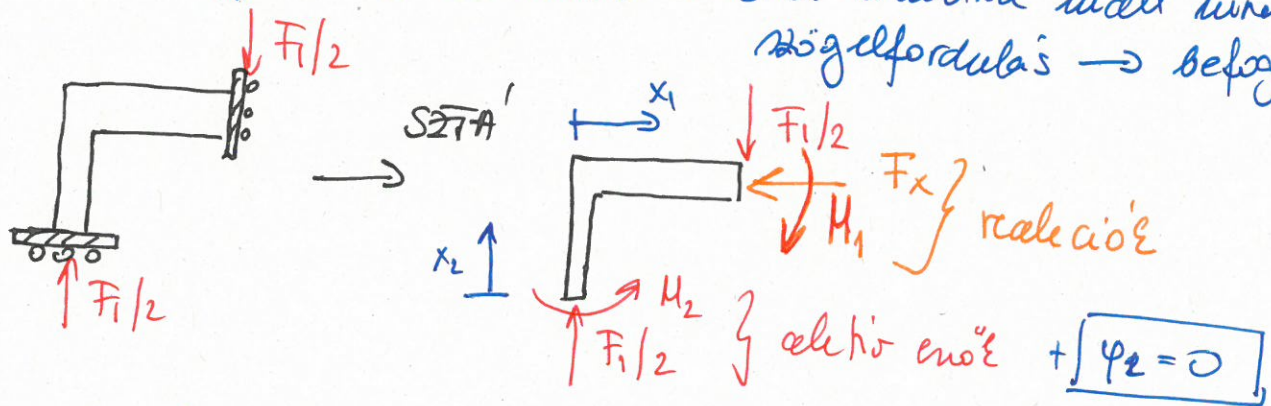 szögelfordulás → befog
F₁/2
SZTÁ
x₁
F₁/2
Fx
M₁
} reakciók
x₂
M₂
F₁/2
} aktív erők + φ₂ = 0
F₁/2